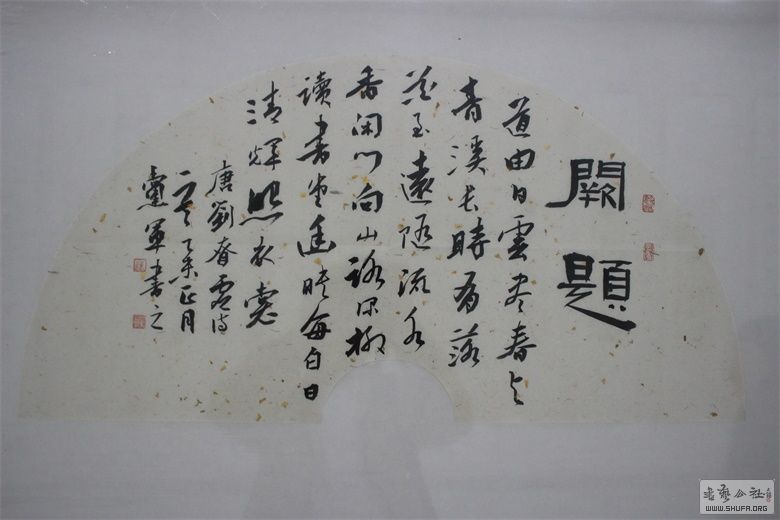 闕題
道由白雲尽春与
青溪長時有落
花至遠随流水
香闲门向山路深柳
讀書堂幽映每白日
清輝照衣裳
唐劉眘虚诗
乙未正月
軍書之
書藝公社
WWW.SHUFA.ORG